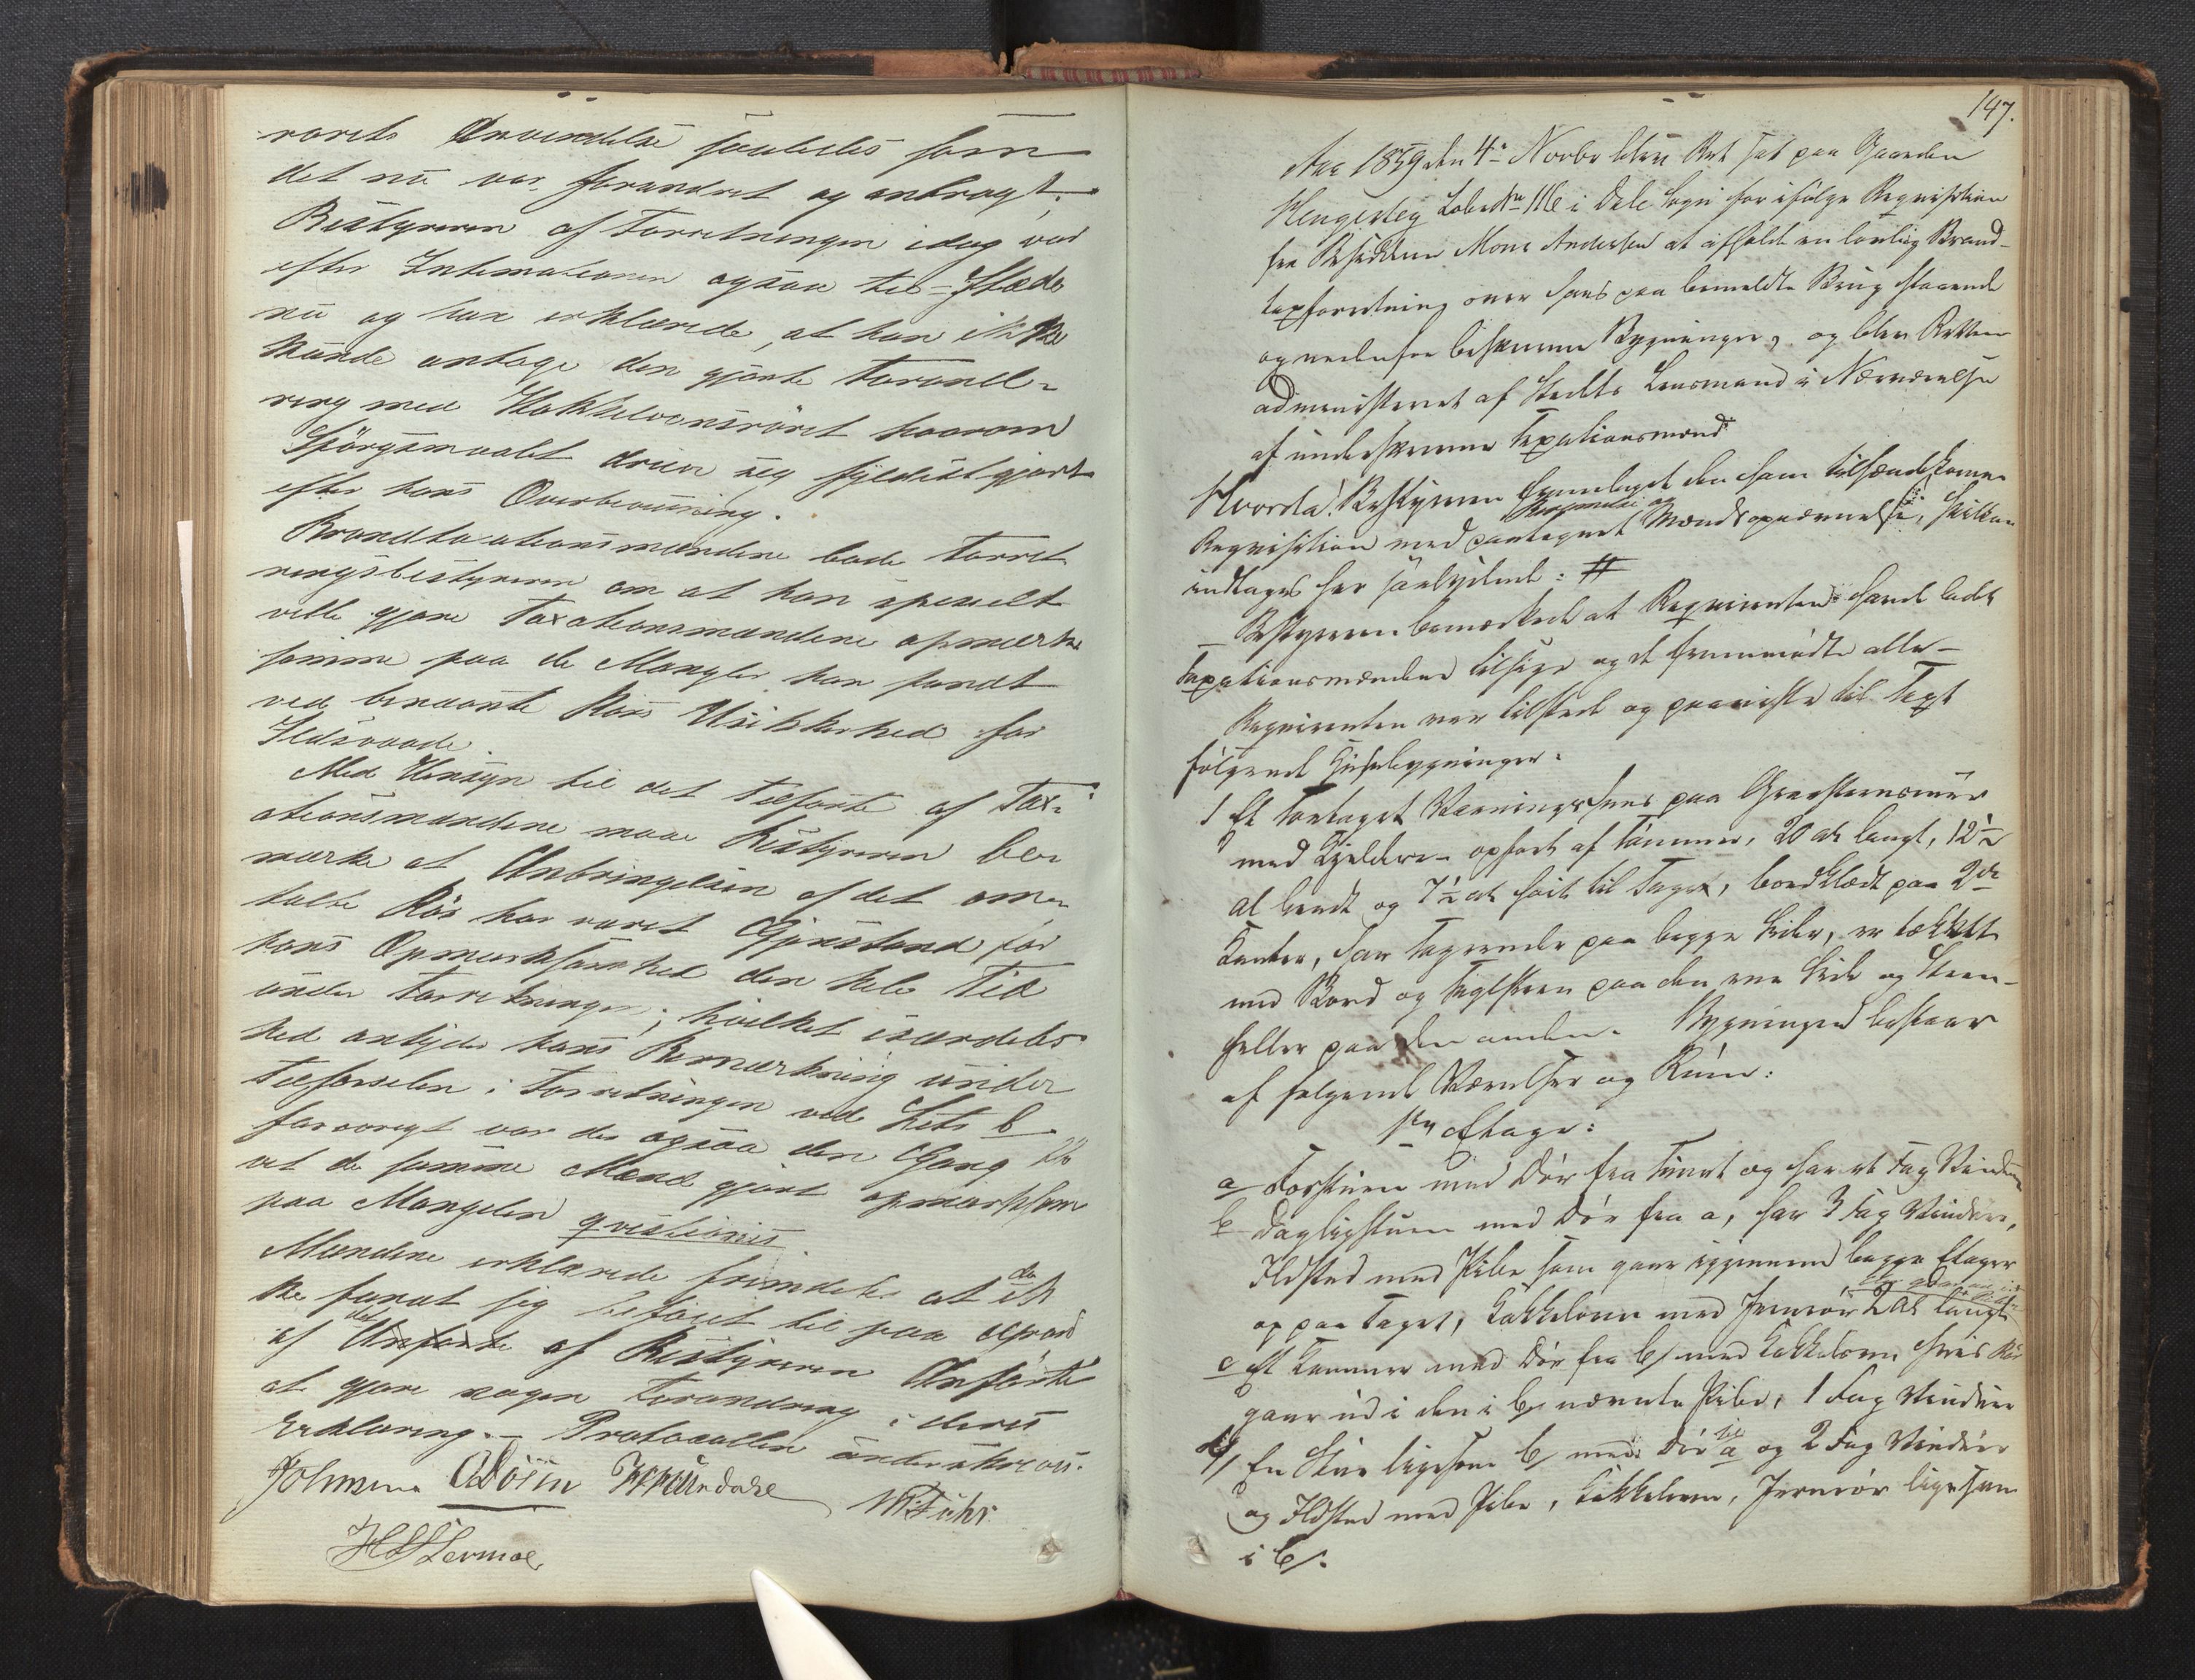 rørets Anvendelse saaledes som
det nu var forandret og anbragt.
Bestyreren af Forretningen idag var
efter Intimationen ogsaa til-Stæde
nu og han erklærede, at han ikke
kunde antage den gjorte Forand-
ring med Kakkelovnsrøret hvorom
Spörgsmaalet dreier sig fyldestgjort
efter hans Overbeviisning.
Brandtaxationsmændene bade Forret
ningsbestyreren om at han specielt
vilde gjøre Taxationsmændene opmærk
somme paa de Mangler han fandt
ved benævnte Rørs Usikkerhed for
Ildsvaade.
Med Hensyn til det Tilførte af Tax-
ationsmændene maa Bestyreren be-
mærke at Anbringelsen af det om-
talte Rör har været Gjenstand for
hans Opmærksomhed den hele Tid
under Forretningen; hvilket isærdeles-
hed antyder hans Bemærkning under
Tilførselen i Forretningen ved Litr b
forøvrigt var der ogsaa den Gang
at de samme Mænd gjort opmærksom
paa Mangelen qvestionis
Mændene erklærede fremdeles at de ik
ke fandt sig beføiet til paa Grund
af det Anførte af Bestyreren Anførte
at gjøre nogen Forandring i deres
Erklæring. - Protocollen underskreven.
Johnsen CDöin
HSLermoe

147.
Aar 1859 den 4de Novbr blev Ret sat paa Gaarden
Hengesteg Løbe No 111e i Dale Sogn for ifölge Reqvisition
fra Besidderen Mons Andersen at afholde en lovlig Brand-
taxforretning over hans paa bemeldte Brug staaende
og nedenfor beskrevne Bygninger, og blev Retten
administreret af Stedets Lensmand i Nærværelse
af underskrevne Taxationsmænd
Hvorda! Bestyreren fremlagde den ham tilhændekomne
Reqvisition med paategnet Berammelse og Mændsopnævnelse, hvilken
indtages her saalydende: #
- Bestyreren bemærkede at Reqvirenten havde ladet
Taxationsmændene tilsige og de fremmødte alle -
Reqvirenten var tilstede og paaviste til Taxt
følgende Huusbygninger:
1 Et toetages Vaaningshuus paa Graasteensmuur
med Kjelder - opført af Tømmer, 20 al langt, 12½
al bredt og 7½ al høit til Taget, bordklædt paa 2de
Kanter, har Tagrender paa begge Sider, er tækket
med Bord og Taglsteen paa den ene Side og Steen-
heller paa den anden. Bygningen bestaar
af følgende Værelser og Rum:
1ste Etage:
a Forstuen med Dör fra Tunet og har et Fag Vinduer
b Dagligstuen med Dör fra a, har 3 Fag Vinduer,
Ildsted med Pibe som gaar igjennem begge Etager
op paa Taget, Kakkelovn med Jernrør 2 al langt
c Et Kammer med Dør fra b/ med Kakkelovn hvis Rør
gaar ud i den i b/ nævnte Pibe, 1 Fag Vinduer
d/ En Stue ligesom b/ med Dör til a og 2 Fag Vinduer
og Ildsted med Pibe, Kakkelovn, Jernrør ligesom
i b/.